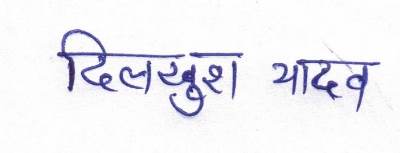 दिलखुश यादव